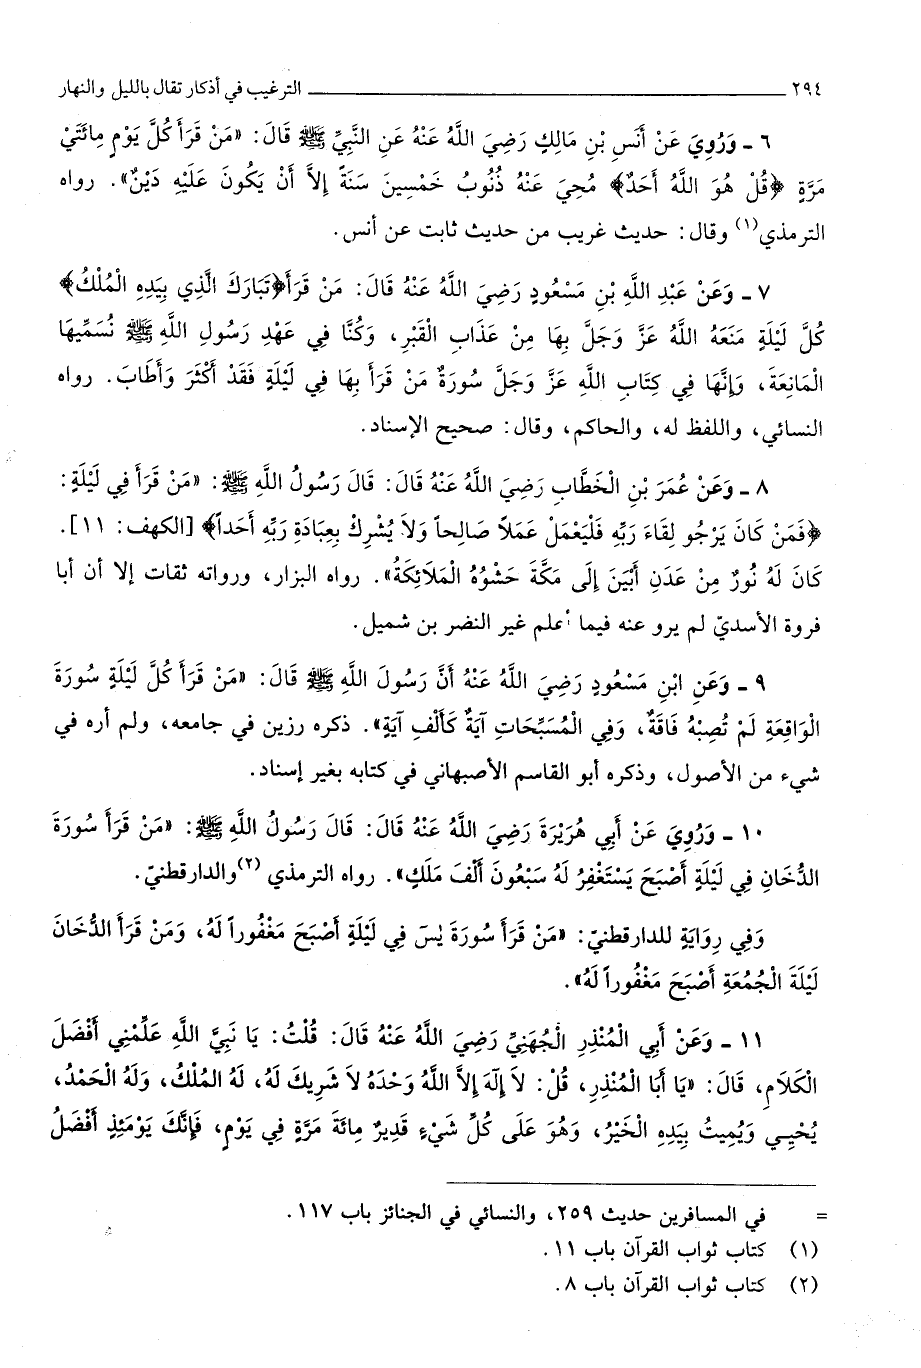 ٢٩٤ الترغيب في أذكار تقال بالليل والنهار
٦ ـ وَرُوِيَ عَنْ أَنَسِ بْنِ مَالِكٍ رَضِيَ اللَّهُ عَنْهُ عَنِ النَّبِيِّ ﷺ قَالَ: «مَنْ قَرَأَ كُلَّ يَوْمٍ مِائَتَيْ
مَرَّةٍ ﴿قُلْ هُوَ اللَّهُ أَحَدٌ﴾ مُحِيَ عَنْهُ ذُنُوبُ خَمْسِينَ سَنَةً إِلاَّ أَنْ يَكُونَ عَلَيْهِ دَيْنٌ». رواه
الترمذي(١) وقال: حديث غريب من حديث ثابت عن أنس.
٧ ـ وَعَنْ عَبْدِ اللَّهِ بْنِ مَسْعُودٍ رَضِيَ اللَّهُ عَنْهُ قَالَ: مَنْ قَرَأَ﴿تَبَارَكَ الَّذِي بِيَدِهِ الْمُلْكُ﴾
كُلَّ لَيْلَةٍ مَنَعَهُ اللَّهُ عَزَّ وَجَلَّ بِهَا مِنْ عَذَابِ الْقَبْرِ، وَكُنَّا فِي عَهْدِ رَسُولِ اللَّهِ ﷺ نُسَمِّيهَا
الْمَانِعَةَ، وَإِنَّهَا فِي كِتَابِ اللَّهِ عَزَّ وَجَلَّ سُورَةٌ مَنْ قَرَأَ بِهَا فِي لَيْلَةٍ فَقَدْ أَكْثَرَ وَأَطَابَ. رواه
النسائي، واللفظ له، والحاكم، وقال: صحيح الإسناد.
٨ ـ وَعَنْ عُمَرَ بْنِ الْخَطَّابِ رَضِيَ اللَّهُ عَنْهُ قَالَ: قَالَ رَسُولُ اللَّهِ ﷺ: «مَنْ قَرَأَ فِي لَيْلَةٍ:
﴿فَمَنْ كَانَ يَرْجُو لِقَاءَ رَبِّهِ فَلْيَعْمَلْ عَمَلاً صَالِحاً وَلاَ يُشْرِكْ بِعِبَادَةِ رَبِّهِ أَحَداً﴾ [الكهف: ١١].
كَانَ لَهُ نُورٌ مِنْ عَدَنِ أَبْيَنَ إِلَى مَكَّةَ حَشْوُهُ الْمَلاَئِكَةُ». رواه البزار، ورواته ثقات إلا أن أبا
فروة الأسديّ لم يرو عنه فيما أعلم غير النضر بن شميل.
٩ ـ وَعَنِ ابْنِ مَسْعُودٍ رَضِيَ اللَّهُ عَنْهُ أَنَّ رَسُولَ اللَّهِ ﷺ قَالَ: «مَنْ قَرَأَ كُلَّ لَيْلَةٍ سُورَةَ
الْوَاقِعَةِ لَمْ تُصِبْهُ فَاقَةٌ، وَفِي الْمُسَبِّحَاتِ آيَةٌ كَأَلْفِ آيَةٍ». ذكره رزين في جامعه، ولم أره في
شيء من الأصول، وذكره أبو القاسم الأصبهاني في كتابه بغير إسناد.
١٠ ـ وَرُوِيَ عَنْ أَبِي هُرَيْرَةَ رَضِيَ اللَّهُ عَنْهُ قَالَ: قَالَ رَسُولُ اللَّهِ ﷺ: «مَنْ قَرَأَ سُورَةَ
الدُّخَانِ فِي لَيْلَةٍ أَصْبَحَ يَسْتَغْفِرُ لَهُ سَبْعُونَ أَلْفَ مَلَكٍ». رواه الترمذي (٢)والدارقطنيّ.
وَفِي رِوَايَةٍ للدارقطنيّ: «مَنْ قَرَأَ سُورَةَ يٰسَ فِي لَيْلَةٍ أَصْبَحَ مَغْفُوراً لَهُ، وَمَنْ قَرَأَ الدُّخَانَ
لَيْلَةَ الْجُمُعَةِ أَصْبَحَ مَغْفُوراً لَهُ».
١١ ـ وَعَنْ أَبِي الْمُنْذِرِ الْجُهَنِيِّ رَضِيَ اللَّهُ عَنْهُ قَالَ: قُلْتُ: يَا نَبِيَّ اللَّهِ عَلِّمْنِي أَفْضَلَ
الْكَلاَمِ، قَالَ: «يَا أَبَا الْمُنْذِرِ، قُلْ: لاَ إِلٰهَ إِلاَّ اللَّهُ وَحْدَهُ لاَ شَرِيكَ لَهُ، لَهُ الْمُلْكُ، وَلَهُ الْحَمْدُ،
يُحْيِي وَيُمِيتُ بِيَدِهِ الْخَيْرُ، وَهُوَ عَلَى كُلِّ شَيْءٍ قَدِيرٌ مِائَةَ مَرَّةٍ فِي يَوْمٍ، فَإِنَّكَ يَوْمَئِذٍ أَفْضَلُ
= في المسافرين حديث ٢٥٩، والنسائي في الجنائز باب ١١٧.
(١) كتاب ثواب القرآن باب ١١.
(٢) كتاب ثواب القرآن باب ٨.